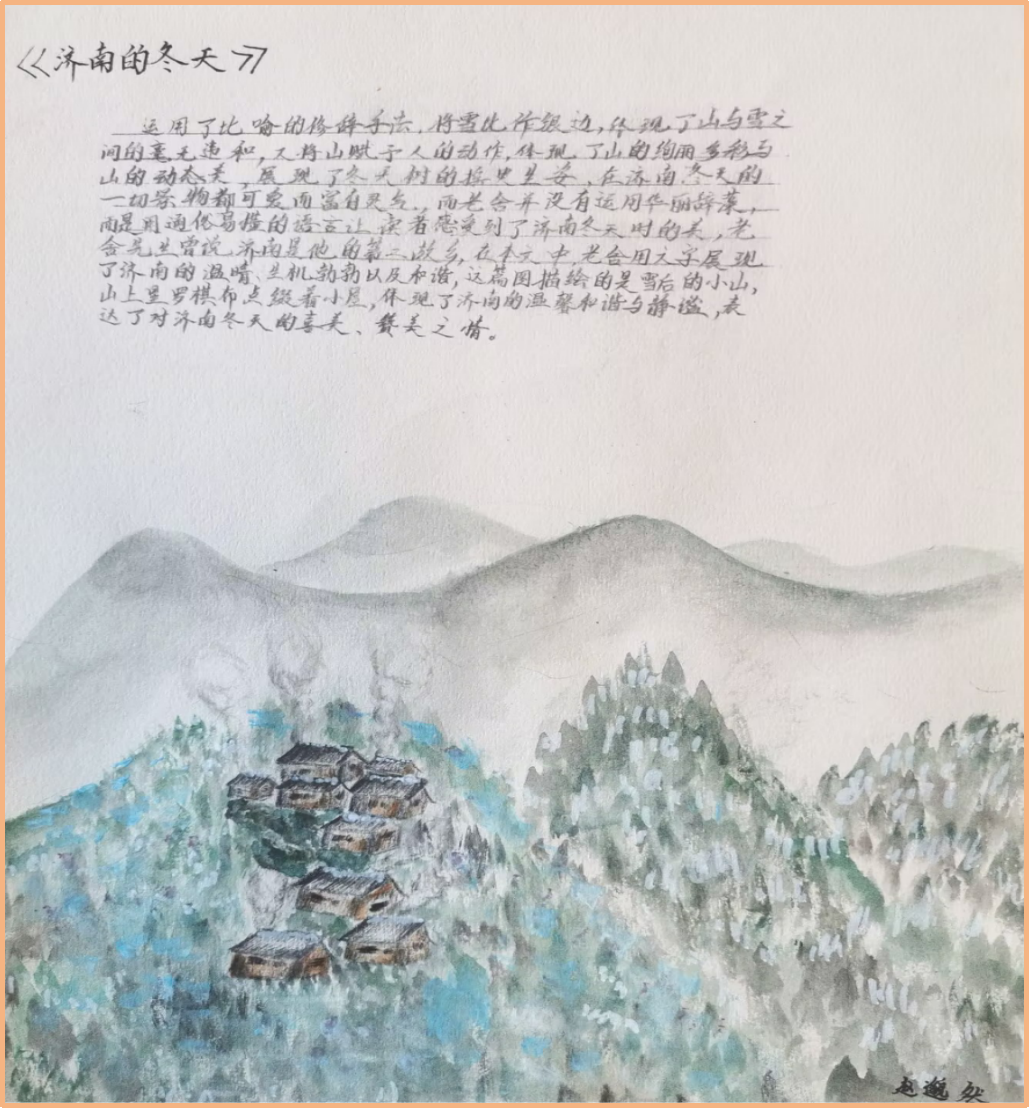 《济南的冬天》
运用了比喻的修辞手法,将雪比作银边,体现了山与雪之
间的毫无违和,又将山赋予人的动作,体现了山的绚丽多彩与
山的动态美,展现了冬天树的摇曳生姿,在济南冬天的
一切景物都可爱而富有灵气,而老舍并没有运用华丽辞藻,
而是用通俗易懂的语言让读者感受到了济南冬天时的美,老
舍先生曾说,济南是他的第二故乡,在本文中,老舍用文字展现
了济南的温晴、生机勃勃以及和谐,这篇图描绘的是雪后的小山,
山上星罗棋布点缀着小屋,体现了济南的温馨和谐与静谧,表
达了对济南冬天的喜美、赞美之情。
赵邈然